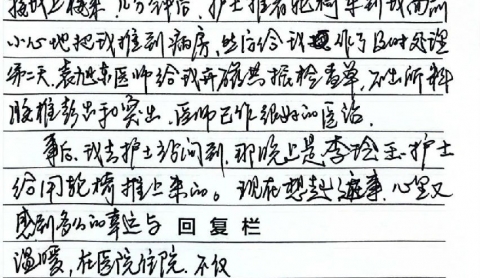 接我上楼来,几分钟后,护士推着轮椅车到我面前
小心地把我推到病房,然后给我作了及时处理
第二天,袁旭东医师给我开磁共振检查单,不出所料
腰椎膨出和突出,医师已作很好的医治.
事后,我去护士站问到,那晚上是李玲玉护士
给用轮椅推上来的。现在想起这事,心里又
感到多么的幸运与 回复栏
温暖,在医院住院.不仅